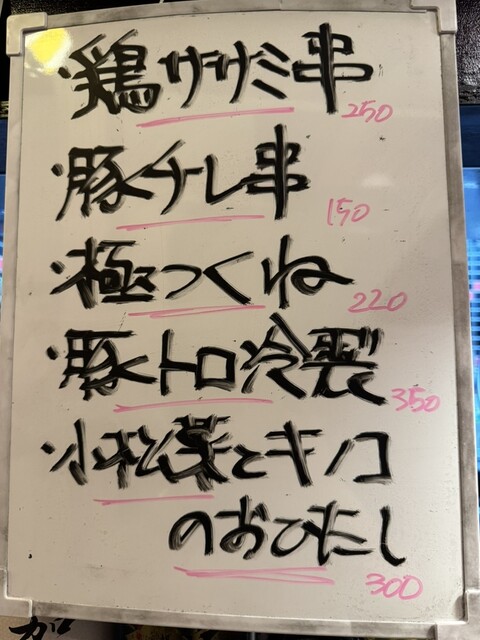 ・鶏ササミ串
250
・豚チレ串
150
・極つくね
220
・豚トロ冷製
350
・小松菜とキノコ
のおひたし
300